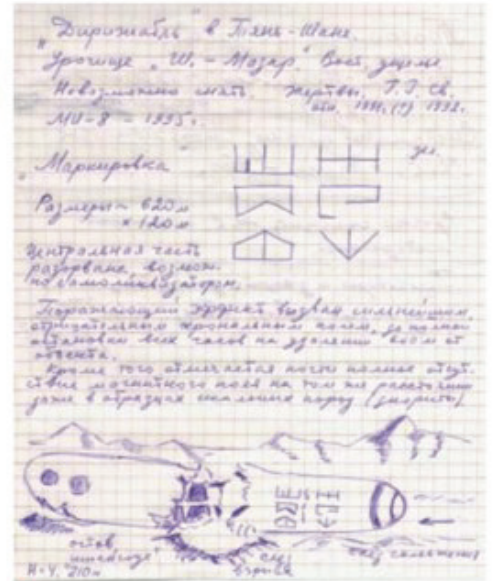 "Дирижабль" в Тянь-Шане.
Урочище "Ш. - Мазар". Вост. ущелье
Невозможно снять. Жертвы. Г.Г. Св.
1991 (?) 1992.
МИ-8 - 1995г.
"Маркировка"
Размеры ~ 620м
× 120м
Центральная часть
разорвана, возмож-
но самоликвидатором.
Поражающий эффект вызван сильнейшим,
отрицательным хрональным полем, до полной
остановки всех часов на удалении 800м от
объекта.
Кроме того отмечается почти полное отсут-
ствие магнитного поля на том же расстоянии
даже в образцах скальных пород
остов
след
взрыва
след скольжения